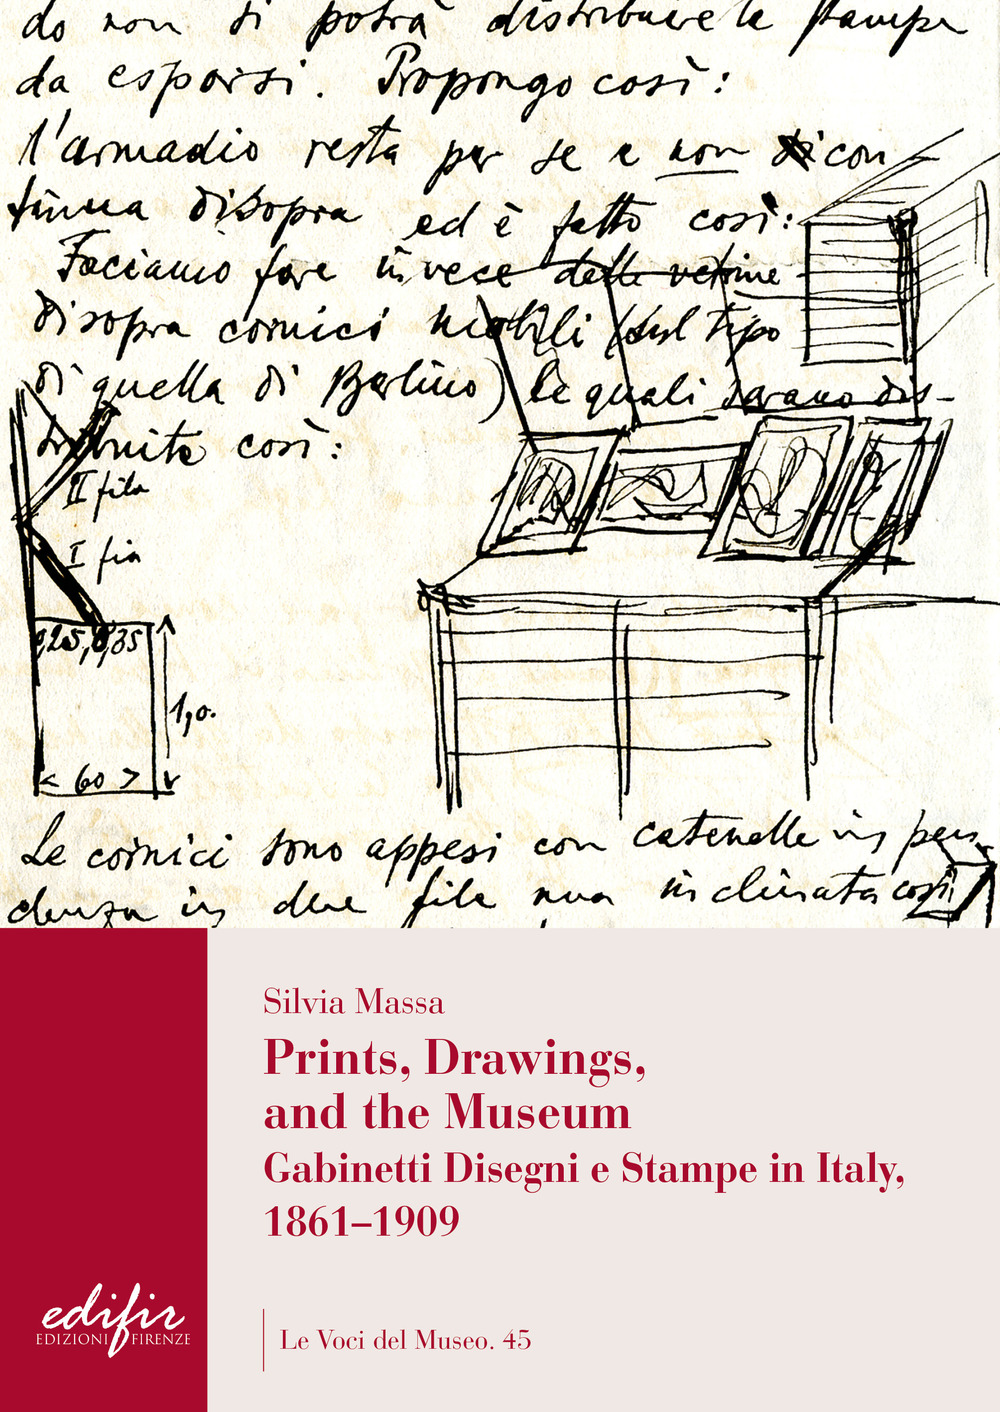 do non si potrà distribuire le stampe
da esporsi. Propongo così:
l'armadio resta per se e non si con
tinua disopra ed è fatto così:
Faciamo fare invece delle vetrine
disopra cornici mobili (sul tipo
di quella di Berlino) le quali sarano dis-
tribuite così:
II fila
I fila
0,25, 0,35
1,0.
< 60 >
Le cornici sono appesi con catenelle in pen
denza in due file una inclinata così
Silvia Massa
Prints, Drawings,
and the Museum
Gabinetti Disegni e Stampe in Italy,
1861–1909
edifir
EDIZIONI FIRENZE
Le Voci del Museo. 45